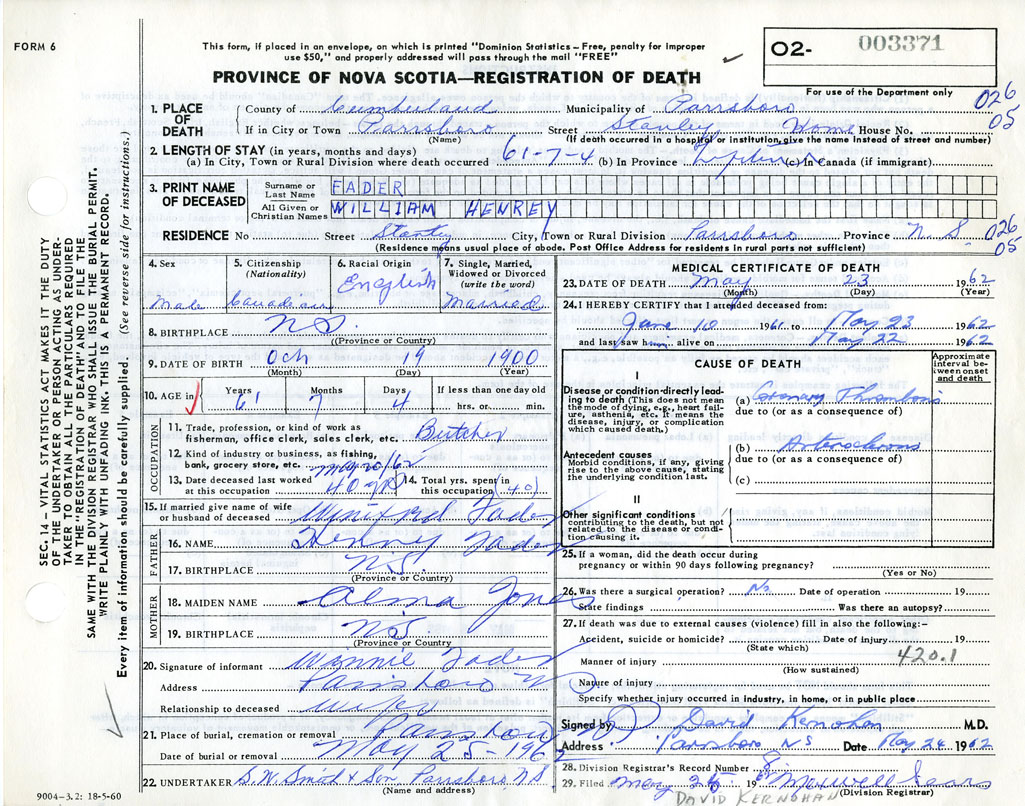 FORM 6
This form, if placed in an envelope, on which is printed "Dominion Statistics – Free, penalty for improper
use $50," and properly addressed will pass through the mail "FREE"
O2- 003371
PROVINCE OF NOVA SCOTIA—REGISTRATION OF DEATH
For use of the Department only
1. PLACE OF DEATH
County of Cumberland Municipality of Parrsboro 026
If in City or Town Parrsboro Street Stanley Home House No. 05
(Name) (If death occurred in a hospital or institution, give the name instead of street and number)
2. LENGTH OF STAY (in years, months and days)
(a) In City, Town or Rural Division where death occurred 61-7-4 (b) In Province Lifetime (c) In Canada (if immigrant)
3. PRINT NAME OF DECEASED
Surname or Last Name FADER
All Given or Christian Names WILLIAM HENREY
RESIDENCE No Street Stanley City, Town or Rural Division Parrsboro Province N.S 026
(Residence means usual place of abode. Post Office Address for residents in rural parts not sufficient) 05
4. Sex Male
5. Citizenship (Nationality) Canadian
6. Racial Origin English
7. Single, Married, Widowed or Divorced (write the word) Married
8. BIRTHPLACE N.S.
(Province or Country)
9. DATE OF BIRTH Oct 19 1900
(Month) (Day) (Year)
10. AGE in Years 61 Months 7 Days 4 If less than one day old
hrs. or min.
OCCUPATION
11. Trade, profession, or kind of work as
fisherman, office clerk, sales clerk, etc. Butcher
12. Kind of industry or business, as fishing,
bank, grocery store, etc.
13. Date deceased last worked
at this occupation May 10/62
14. Total yrs. spent in
this occupation (40) 40 yrs
15. If married give name of wife
or husband of deceased Winifred Fader
FATHER
16. NAME Henry Fader
17. BIRTHPLACE N.S.
(Province or Country)
MOTHER
18. MAIDEN NAME Alma Jones
19. BIRTHPLACE N.S.
(Province or Country)
20. Signature of informant Winnie Fader
Address Parrsboro NS
Relationship to deceased Wife
21. Place of burial, cremation or removal Parrsboro
Date of burial or removal May 25-1962
22. UNDERTAKER S.W. Smith & Son Parrsboro NS
(Name and address)
9004-3.2: 18-5-60
MEDICAL CERTIFICATE OF DEATH
23. DATE OF DEATH May 23 1962
(Month) (Day) (Year)
24. I HEREBY CERTIFY that I attended deceased from:
June 10 1961 to May 23 1962
and last saw him alive on May 22 1962
CAUSE OF DEATH
Approximate interval between onset and death
I
Disease or condition directly leading to death (This does not mean
the mode of dying, e.g., heart failure, asthenia, etc. It means the
disease, injury, or complication
which caused death.)
(a) Coronary Thrombosis
due to (or as a consequence of)
Antecedent causes
Morbid conditions, if any, giving
rise to the above cause, stating
the underlying condition last.
(b)
due to (or as a consequence of)
(c)
II
Other significant conditions
contributing to the death, but not
related to the disease or condition causing it.
25. If a woman, did the death occur during
pregnancy or within 90 days following pregnancy?
(Yes or No)
26. Was there a surgical operation? No Date of operation 19
State findings Was there an autopsy?
27. If death was due to external causes (violence) fill in also the following:–
Accident, suicide or homicide? Date of injury 19
(State which) 420.1
Manner of injury
(How sustained)
Nature of injury
Specify whether injury occurred in industry, in home, or in public place
Signed by David Kernohan M.D.
Address Parrsboro NS Date May 24 1962
28. Division Registrar's Record Number 8
29. Filed May 25 19 62 Maxwell
(Division Registrar)
DAVID KERNOHAN
SEC. 14 – VITAL STATISTICS ACT MAKES IT THE DUTY
OF THE UNDERTAKER OR PERSON ACTING AS UNDERTAKER TO OBTAIN ALL THE PARTICULARS REQUIRED
IN THE "REGISTRATION OF DEATH" AND TO FILE THE
SAME WITH THE DIVISION REGISTRAR WHO SHALL ISSUE THE BURIAL PERMIT.
WRITE PLAINLY WITH UNFADING INK. THIS IS A PERMANENT RECORD.
Every item of information should be carefully supplied. (See reverse side for instructions.)